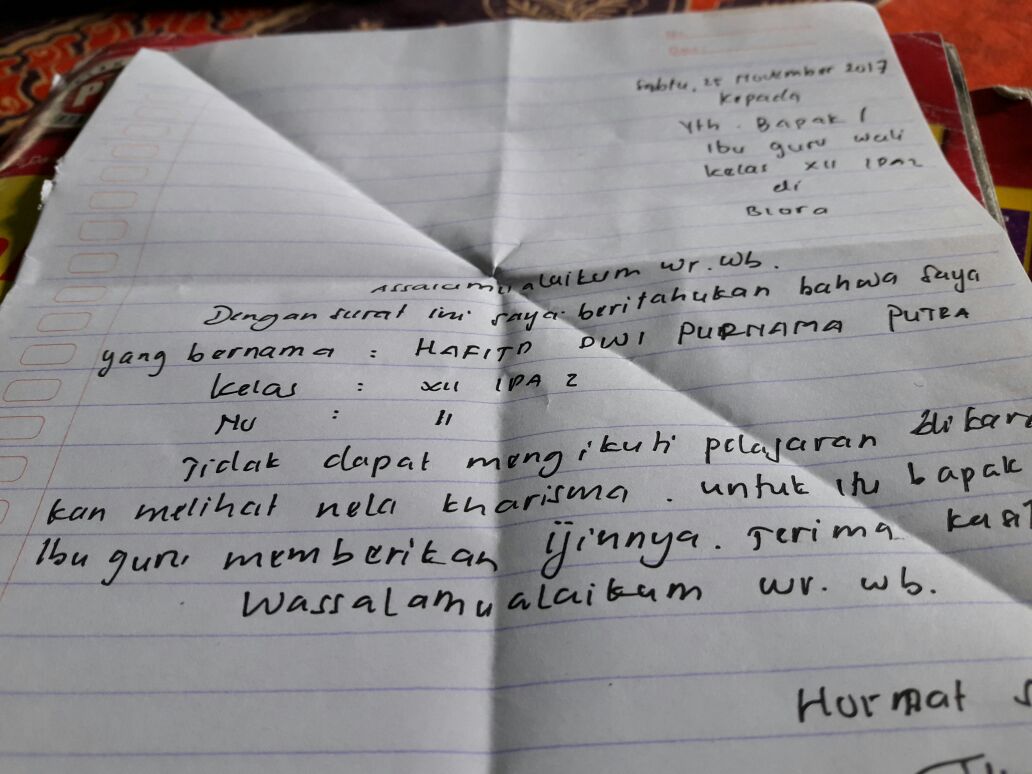 Sabtu, 25 November 2017
Kepada
Yth. Bapak /
Ibu guru wali
kelas XII IPA2
di
Blora
Assalamualaikum wr. wb.
Dengan surat ini saya beritahukan bahwa saya
yang bernama : HAFITD DWI PURNAMA PUTRA
Kelas : XII IPA 2
No : 11
Tidak dapat mengikuti pelajaran dikare
kan melihat nela kharisma. untuk itu bapak
Ibu guru memberikan ijinnya. Terima kasi
Wassalamualaikum wr. wb.
Hormat s